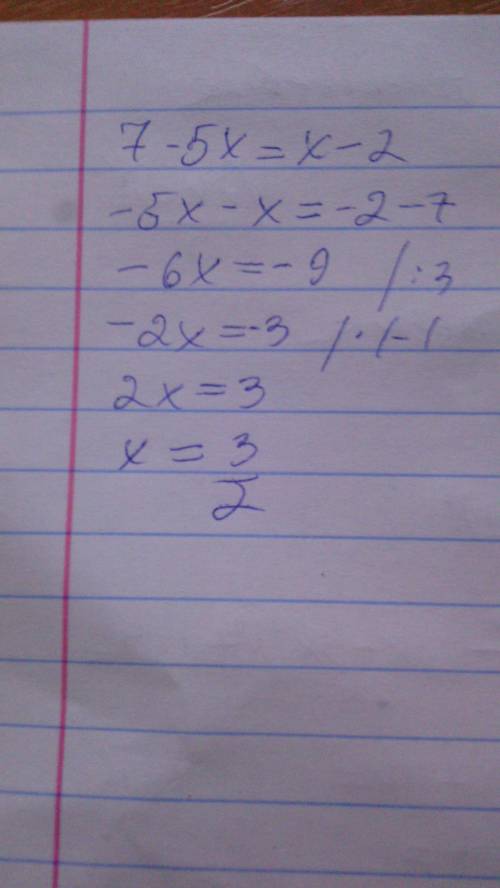 7-5x=x-2
-5x-x=-2-7
-6x=-9 /:3
-2x=-3 /·(-1
2x=3
x=3
2